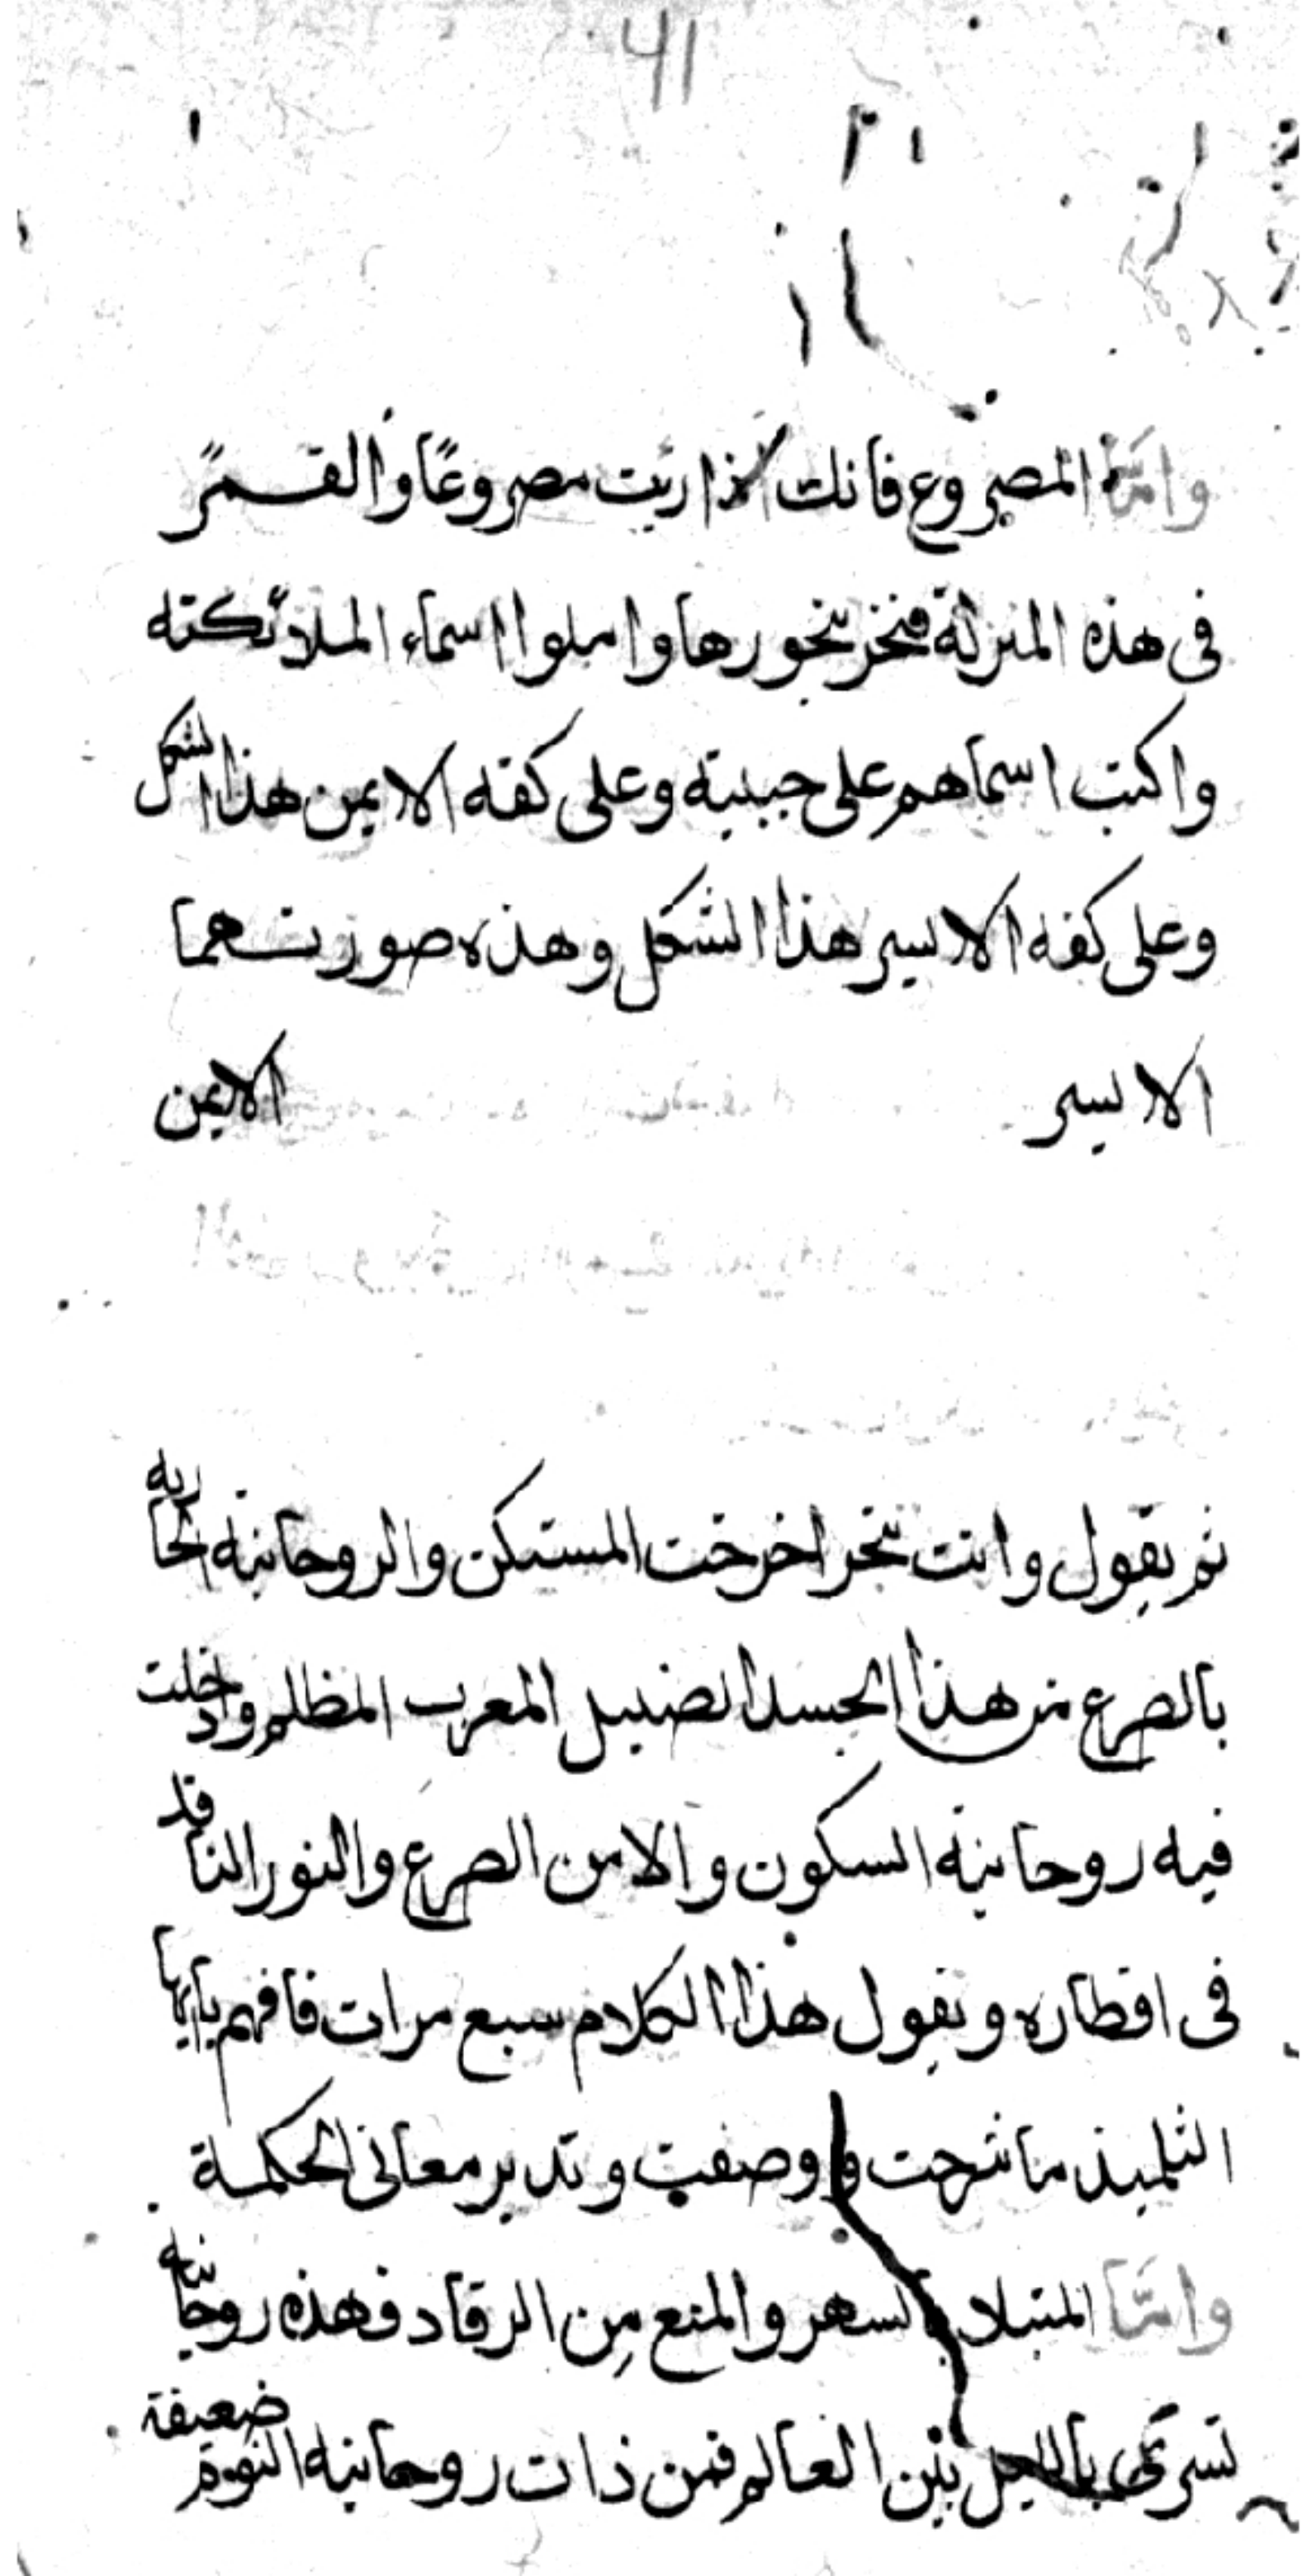 41
وامّا المصروع فانك اذا رئيت مصروعًا والقمر
فى هذه المنزلة فبخر بنجورها واملوا اسماء الملائكته
واكتب اسماهم على جبينه وعلى كفه الايمن هذا الشكل
وعلى كفه الايسر هذا الشكل وهذه صورتهما
الايسر الايمن
ثم يقول وانت تبخر اخرخت المستكن والروحانيه الحاريه
بالصرع من هذا الجسد الضييل المعرب المظلم وادخلت
فيه روحانية السكون والامن الصرع والنور الناقد
فى اقطاره ويقول هذا الكلام سبع مرات فافهم يا ايها
التلميذ ما شرحت و اوصفت وتدبر معانى الحكمة
وامّا المتبلا بالسهر والمنع مِن الرقاد فهذه روحانيه
تسرى بالليل بين العالم فمن ذات روحانيه النومة ضعيفة